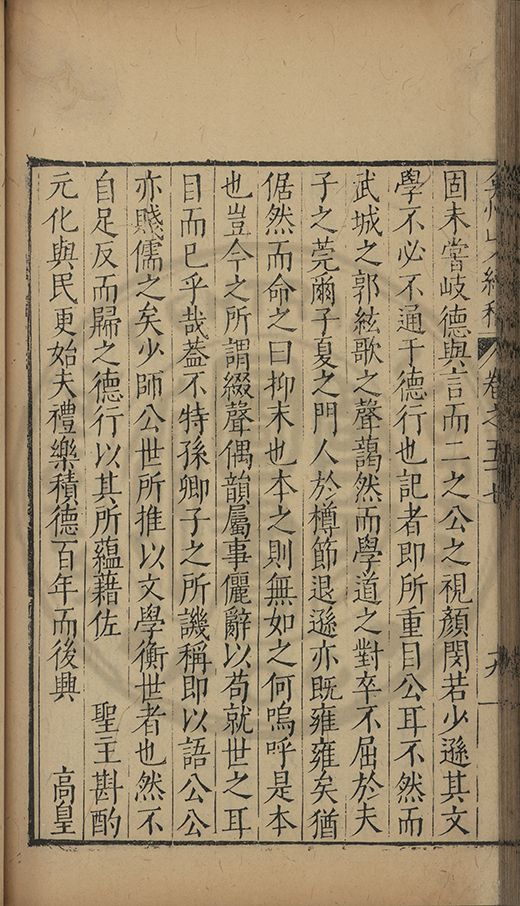 弇州山人續稿 卷之五十七 九
固未嘗岐德與言而二之公之視顏閔若少遜其文
學不必不通于德行也記者即所重目公耳不然而
武城之郭絃歌之聲藹然而學道之對卒不屈於夫
子之莞爾子夏之門人於樽節退遜亦既雍雍矣猶
倨然而命之曰抑末也本之則無如之何嗚呼是本
也豈今之所謂綴聲偶韻屬事儷辭以苟就世之耳
目而巳乎哉葢不特孫卿子之所譏稱即以語公公
亦賤儒之矣少師公世所推以文學衡世者也然不
自足反而歸之德行以其所蘊藉佐 聖王斟酌
元化與民更始夫禮樂積德百年而後興 高皇